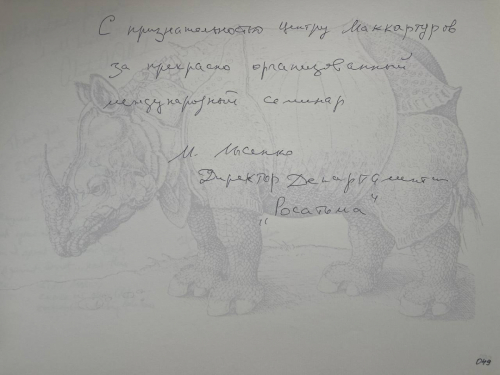 С признательностью Центру Маккартуров
за прекрасно организованный
международный семинар
М. Лысенко
Директор Департамента
"Росатома"
049